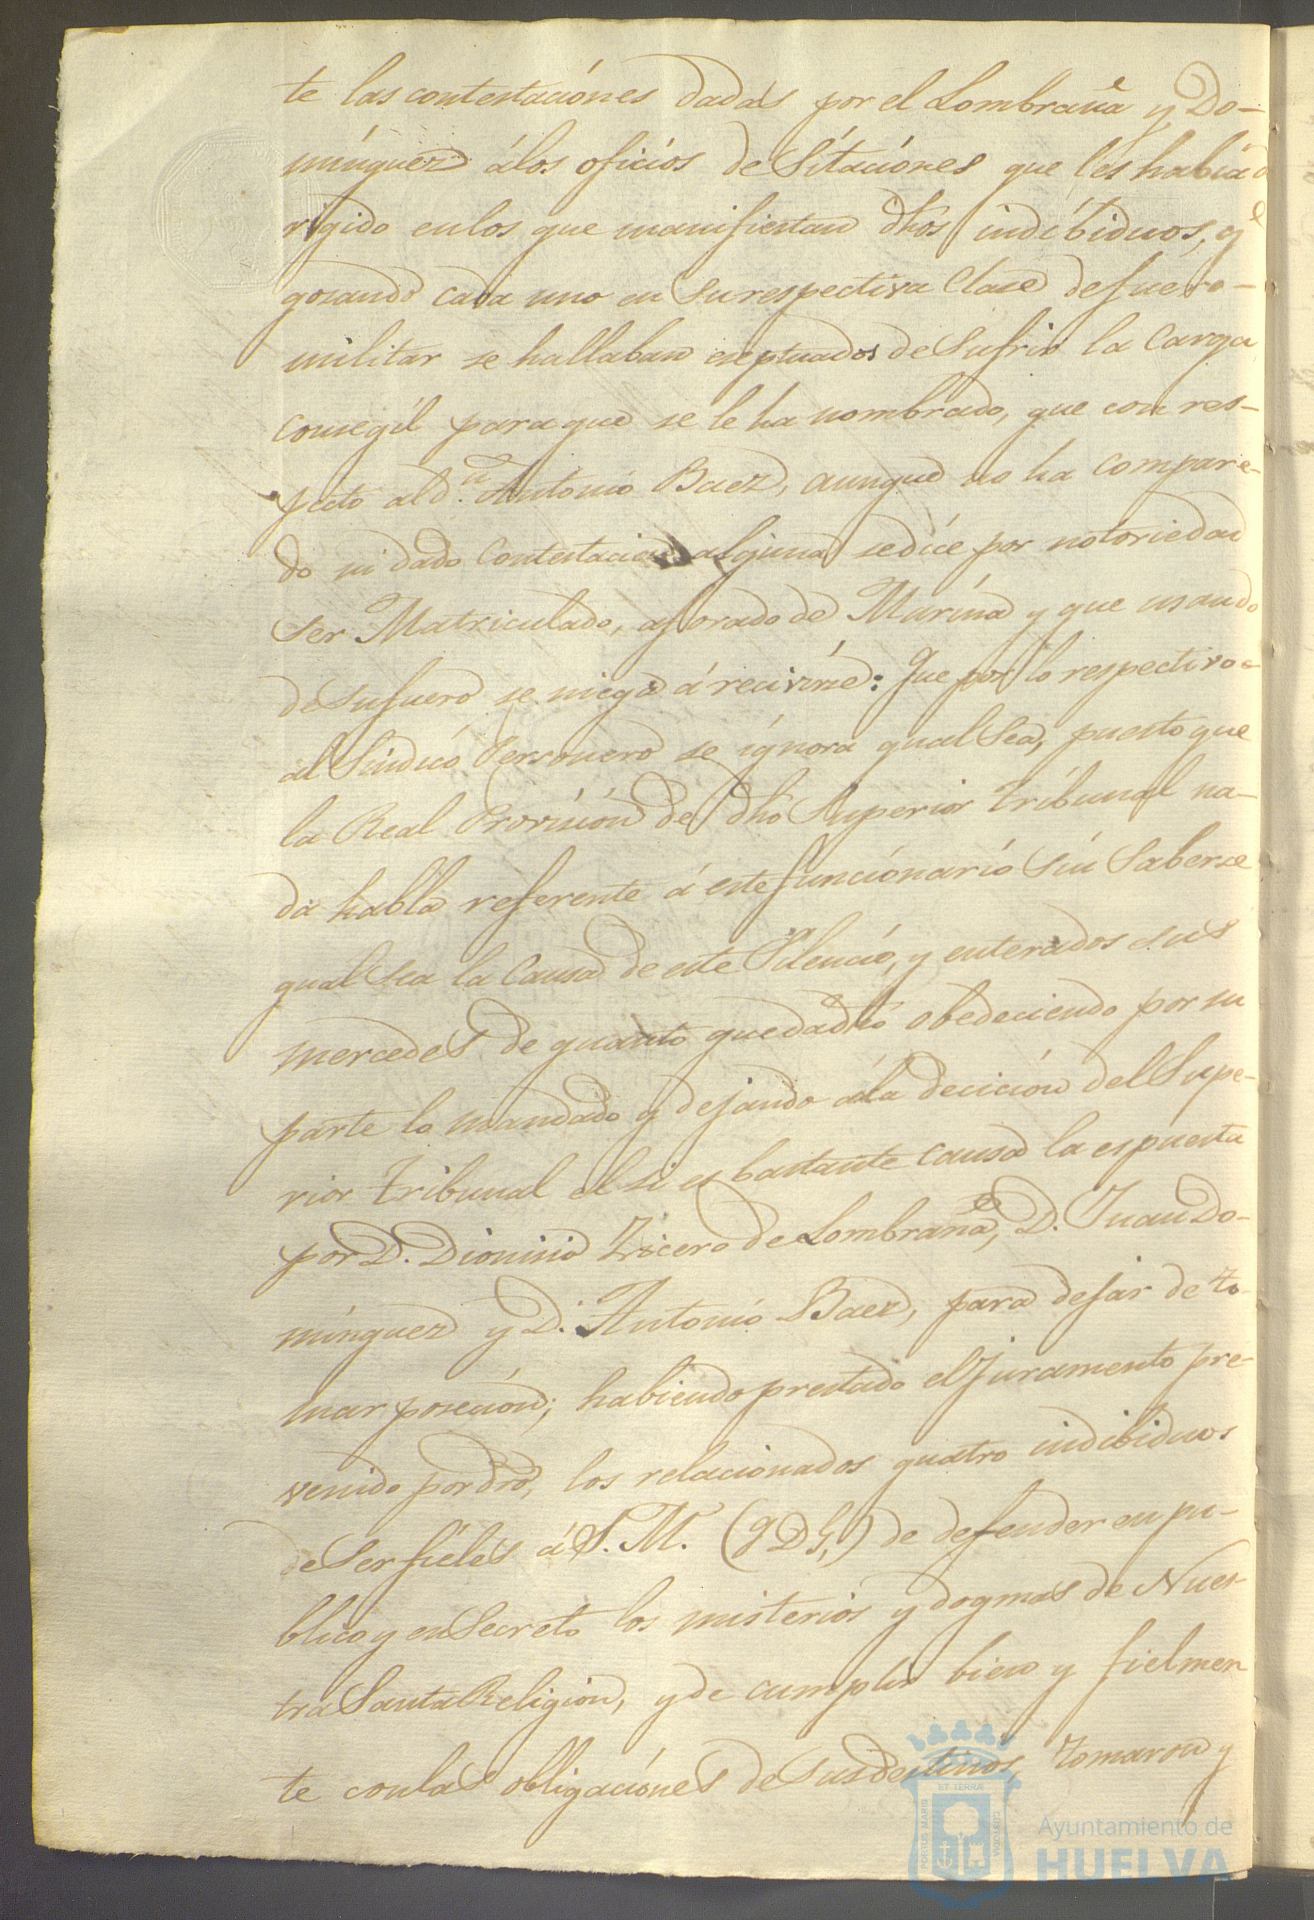 te las contestaciónes dadas por el Lombraña y Do-
mínguez álos oficíos de Sítaciónes que les había di
rigido en los que manifiestan dhós indíbiduos, qe
gozando cada uno en su respectiva Clase de fuero-
militar se hallaban eseptuados de Sufrir la Carga
consegíl para que se le ha nombrado, que con res-
pecto al dn. Antonio Baez, aunque no ha compare-
do ni dado Contestacion alguna sedíce por notoriedad
ser Matriculado, aforado de Marína y que usando
de su fuero se niega á recivirse: Que por lo respectivo-
al Síndicó Personero se ígnora qual Sea, puesto que
la Real Provisión de dhó Superior tríbunal na-
da habla referente á este funcíonarío sin Saberse
qual Sea la Causa de este Silencío, y enterados sus
mercedes de quanto queda dhó obedeciendo por su
parte lo mandado y dejando ála decicíon del Supe-
rior tribunal el si es bastante causa la espuesta
por D. Dionisio Tricero de Lombraña, D. Juan Do-
mínguez y D. Antonío Baez, para dejar de to-
mar poseción; habiendo prestado el Juramento pre-
venido por dró, los relacionados quatro indibiduos
de Ser fieles á S. M. (q D G,) de defender en pu-
blico y en Secreto los misterios y dogmas de Nues-
tra Santa Religion, y de cumplir bien y fielmen
te con las obligaciónes de sus destinos, tomaron y
PORTUS MARIS
ET TERRÆ
CUSTODIA
Ayuntamiento de
HUELVA